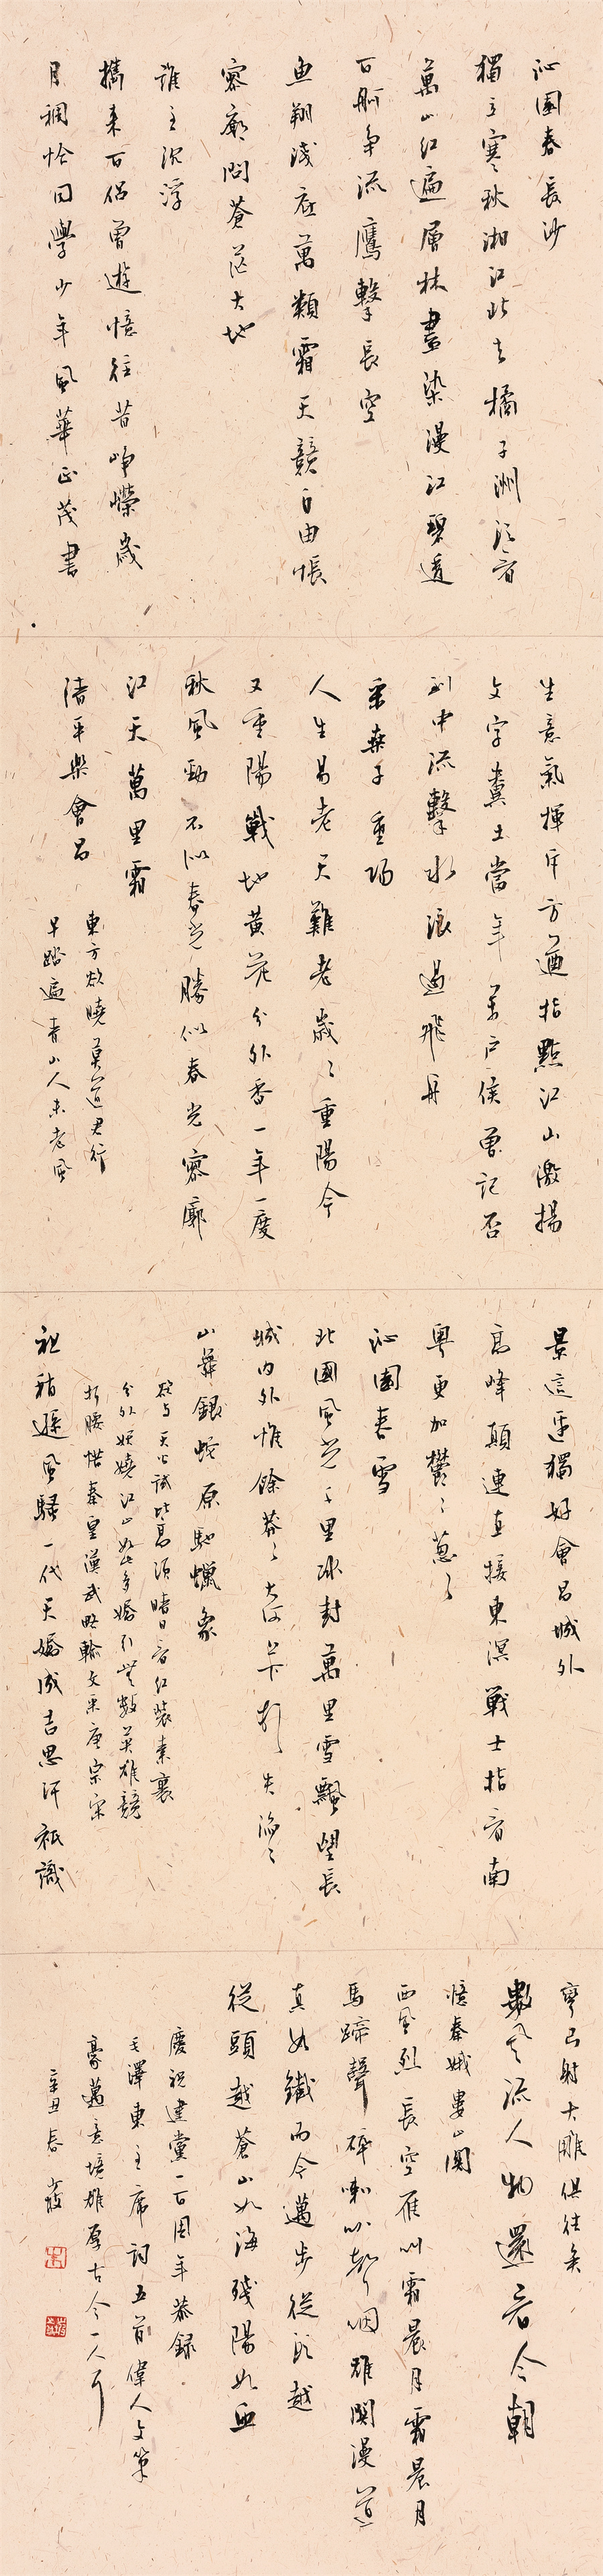 沁園春長沙
獨立寒秋湘江北去橘子洲頭看
萬山紅遍層林盡染漫江碧透
百舸爭流鷹擊長空
魚翔淺底萬類霜天競自由悵
寥廓問蒼茫大地
誰主沉浮
攜來百侶曾遊憶往昔崢嶸歲
月稠恰同學少年風華正茂書
生意氣揮斥方遒指點江山激揚
文字糞土當年萬戶侯曾記否
到中流擊水浪遏飛舟
采桑子重陽
人生易老天難老歲〻重陽今
又重陽戰地黃花分外香一年一度
秋風勁不似春光勝似春光寥廓
江天萬里霜
清平樂會昌
東方欲曉莫道君行
早踏遍青山人未老風
景這邊獨好會昌城外
高峰顛連直接東溟戰士指看南
粵更加鬱〻蔥〻
沁園春雪
北國風光千里冰封萬里雪飄望長
城內外惟餘莽〻大河上下頓失滔〻
山舞銀蛇原馳蠟象
欲與天公試比高須晴日看紅裝素裹
分外妖嬈江山如此多嬌引無數英雄競
折腰惜秦皇漢武略輸文采唐宗宋
祖稍遜風騷一代天驕成吉思汗衹識
彎弓射大雕俱往矣
數風流人物還看今朝
憶秦娥婁山關
西風烈長空雁叫霜晨月霜晨月
馬蹄聲碎喇叭聲咽雄關漫道
真如鐵而今邁步從頭越
從頭越蒼山如海殘陽如血
慶祝建黨一百周年恭錄
毛澤東主席詞五首偉人文筆
豪邁意境雄厚古今一人耳
辛丑春